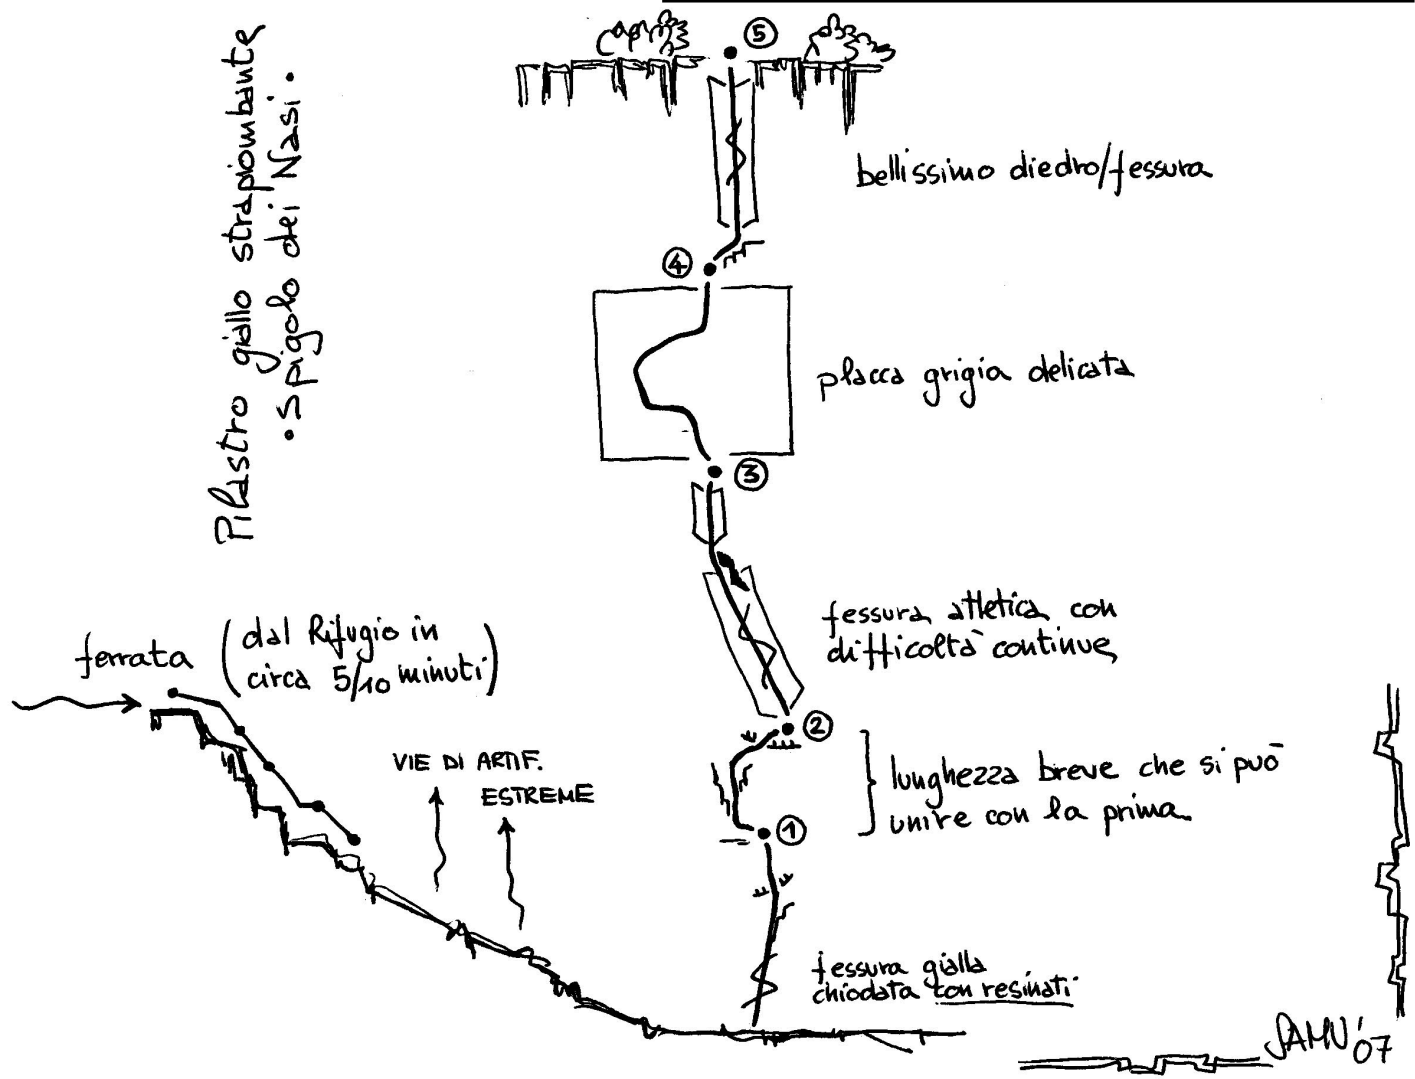 Pilastro giallo strapiombante
• Spigolo dei Nasi •
5
bellissimo diedro/fessura
4
placca grigia delicata
3
fessura atletica con
difficoltà continue
2
lunghezza breve che si può
unire con la prima
1
fessura gialla
chiodata con resinati
ferrata
(dal Rifugio in
circa 5/10 minuti)
VIE DI ARTIF.
ESTREME
SAMU '07